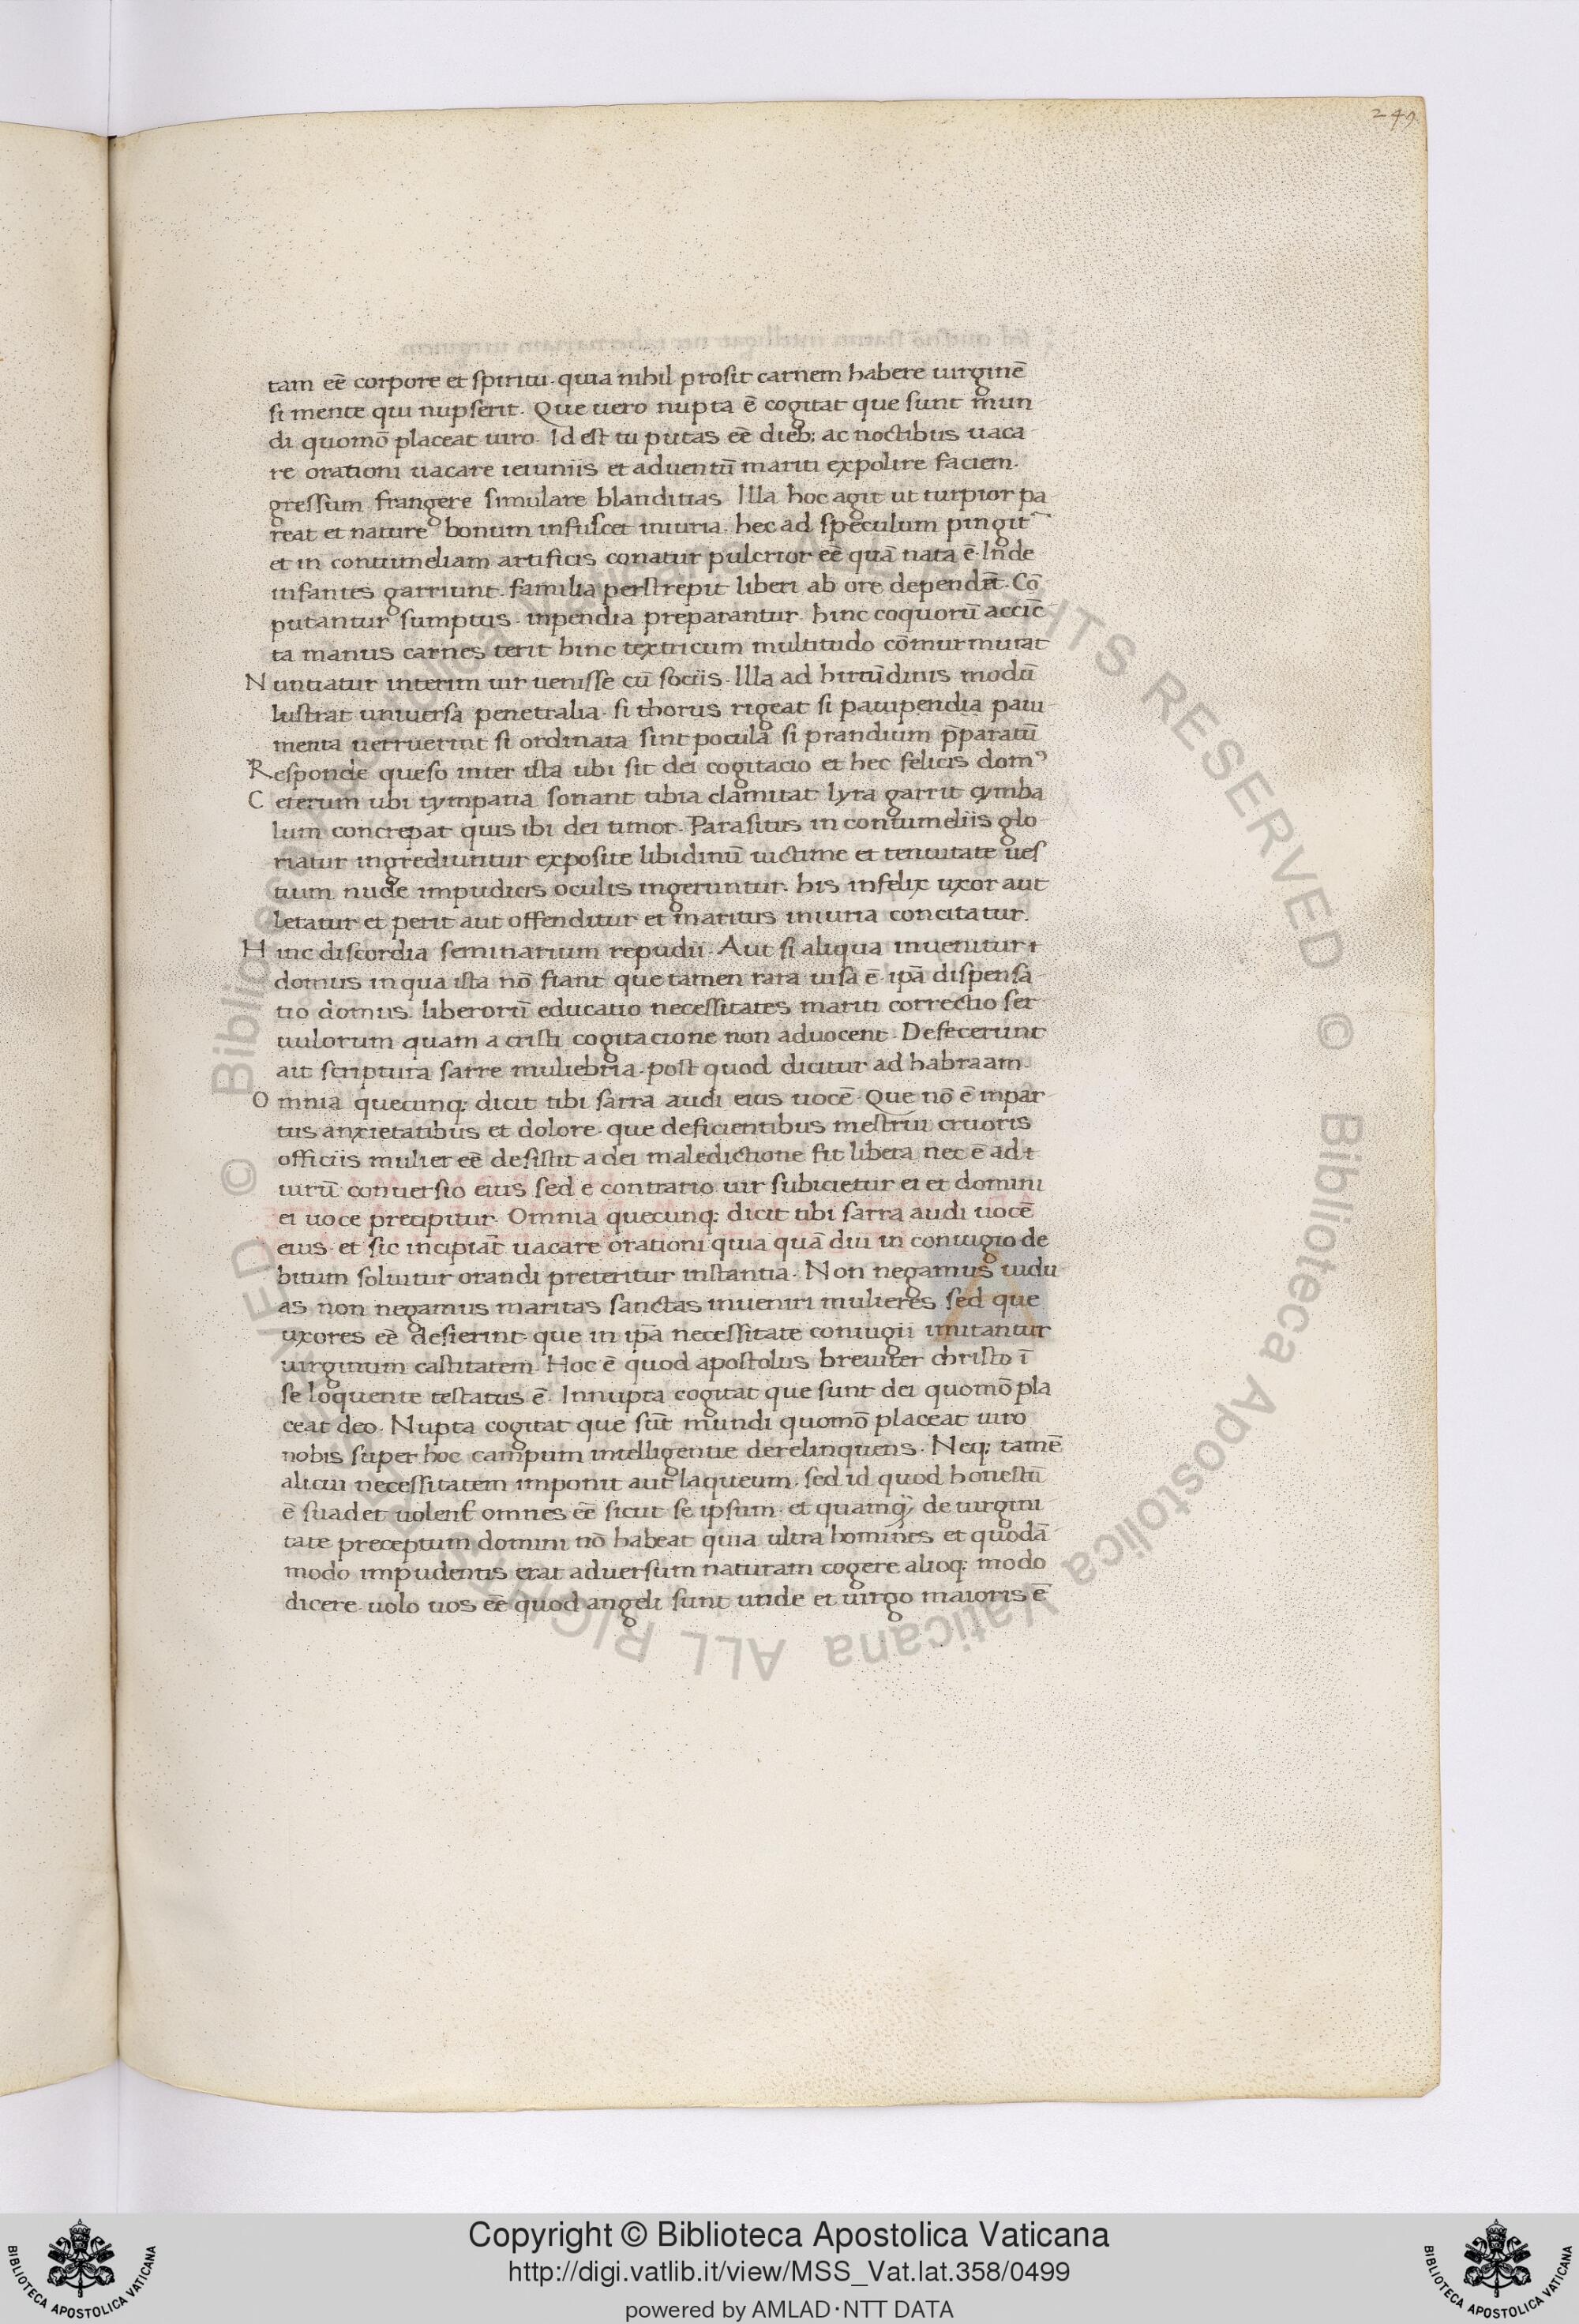 249
tam eē corpore et spiritu. quia nihil prosit carnem habere uirginē
si mente qui nupserit. Que uero nupta ē cogitat que sunt mun
di quomō placeat uiro. Id est tu putas eē dieb; ac noctibus uaca
re orationi uacare ieiuniis et aduentū mariti expolire faciem.
gressum frangere simulare blanditias. Illa hoc agit ut turpior pa
reat et nature bonum infuscet iniuria. hec ad speculum pingit̄
et in contumeliam artificis conatur pulcrior eē quā nata ē. Inde
infantes garriunt. familia perstrepit liberi ab ore dependēt. Cō
putantur sumptus. inpendia preparantur. hinc coquorū accīc
ta manus carnes terit hinc textricum multitudo cōmurmurat
Nuntiatur interim uir uenisse cū sociis. Illa ad hirūdinis modū
lustrat uniuersa penetralia. si thorus rigeat si pauipendia paui
menta uerruerint si ordinata sint pocula si prandium p̄paratū
Responde queso inter ista ubi sit dei cogitacio et hec felicis domꝰ
Ceterum ubi tympana sonant tibia clamitat lyra garrit cymba
lum concrepat quis ibi dei timor. Parasitus in contumeliis glo
riatur ingrediuntur exposite libidinū uictime et tenuitate ues
tium nude impudicis oculis ingeruntur. his infelix uxor aut
letatur et perit aut offenditur et maritus iniuria concitatur.
Hinc discordia seminarium repudii. Aut si aliqua inuenitur
domus in qua ista nō fiant que tamen rara uisa ē. ipā dispensa
tio domus. liberorū educatio necessitates mariti correctio ser
uulorum quam a cristi cogitacione non aduocent. Defecerunt
ait scriptura sarre muliebria. post quod dicitur ad habraam.
Omnia quecunq; dicit tibi sarra audi eius uocē. Que nō ē inpar
tus anxietatibus et dolore. que deficientibus mestrui cruoris
officiis mulier eē desistit a dei maledictione fit libera nec ē ad
uirū conuersio eius sed e contrario uir subicietur ei et domini
ei uoce precipitur. Omnia quecunq; dicit tibi sarra audi uocē
eius. et sic incipiāt uacare orationi quia quā diu in coniugio de
bitum soluitur orandi preteritur instantia. Non negamus uidu
as non negamus maritas sanctas inueniri mulieres sed que
uxores eē desierint. que in ipā necessitate coniugii imitantur
uirginum castitatem. Hoc ē quod apostolus breuiter christo ī
se loquente testatus ē. Innupta cogitat que sunt dei quomō pla
ceat deo. Nupta cogitat que sūt mundi quomō placeat uiro
nobis super hoc campum intelligentie derelinquens. Neq; tamē
alicui necessitatem imponit aut laqueum. sed id quod honestū
ē suadet uolens omnes eē sicut se ipsum. et quamq̄ de uirgini
tate preceptum domini nō habeat quia ultra homines et quodā
modo impudentis erat aduersum naturam cogere alioq; modo
dicere uolo uos eē quod angeli sunt unde et uirgo maioris ē
© Biblioteca Apostolica Vaticana ALL RIGHTS RESERVED © Biblioteca Apostolica Vaticana ALL RIGHTS RESERVED
Copyright © Biblioteca Apostolica Vaticana
http://digi.vatlib.it/view/MSS_Vat.lat.358/0499
powered by AMLAD·NTT DATA
BIBLIOTECA APOSTOLICA VATICANA
BIBLIOTECA APOSTOLICA VATICANA